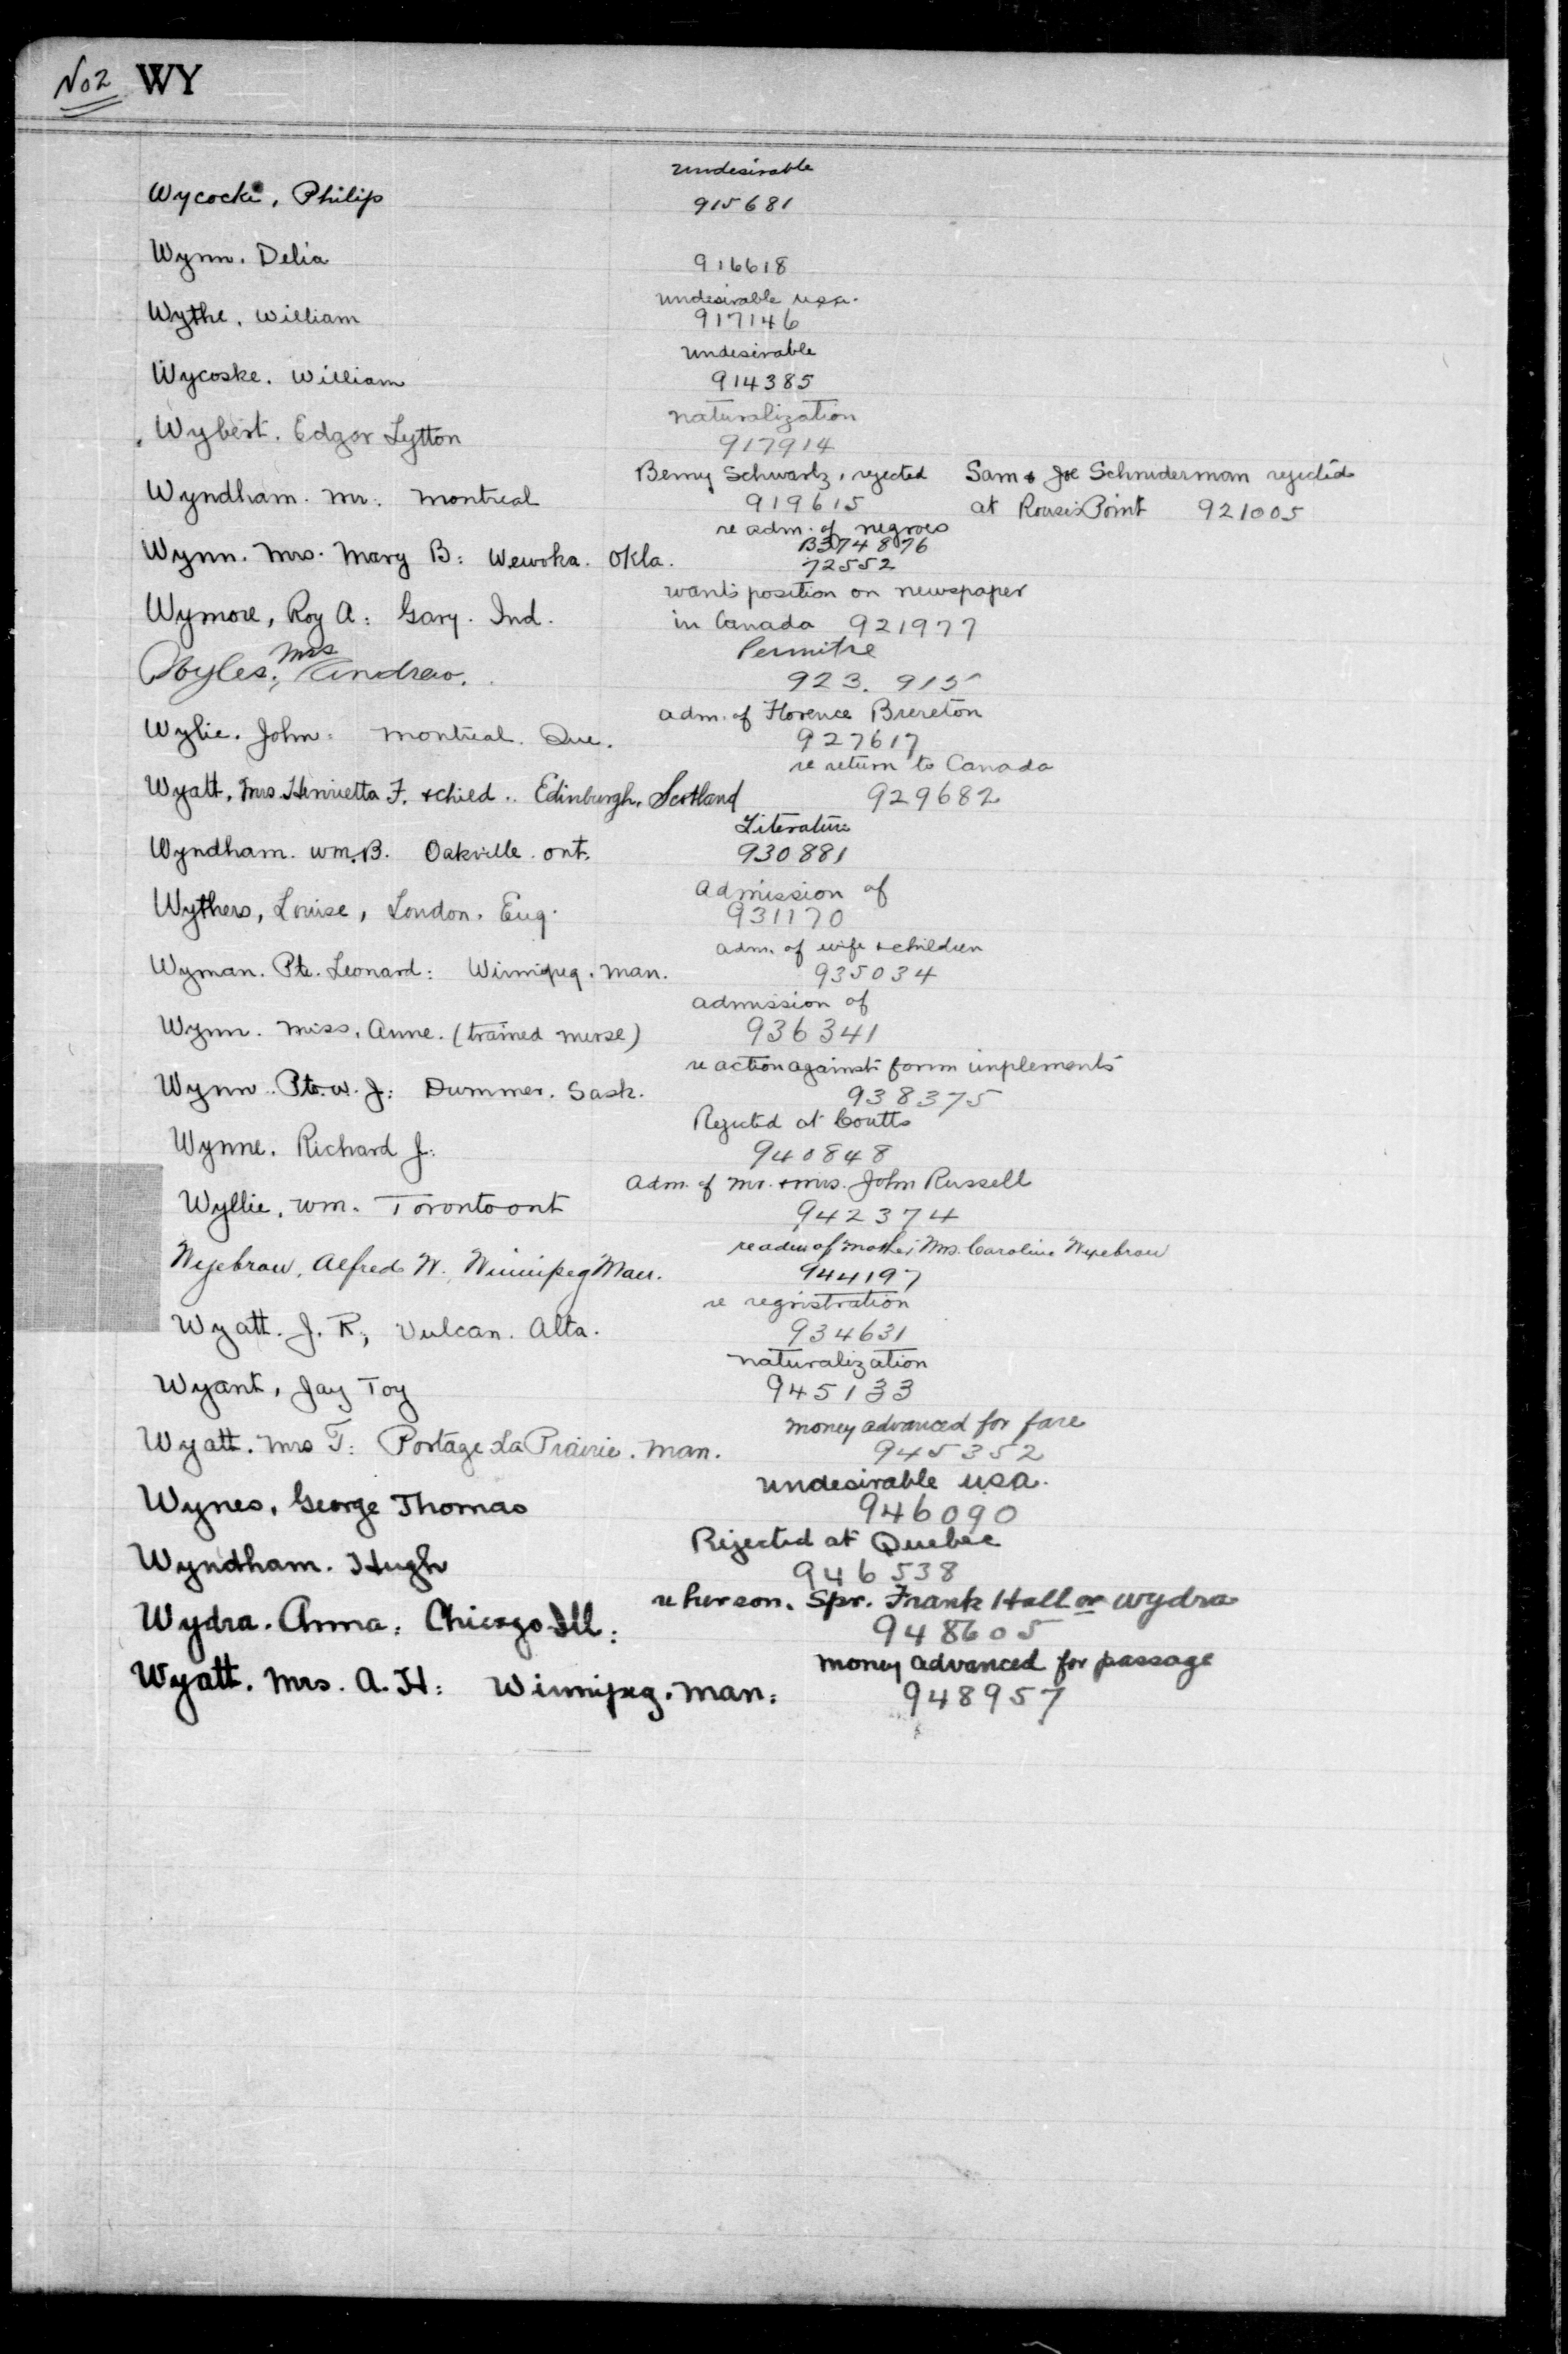 No 2 WY
undesirable
Wycocki, Philip 915681
Wynn. Delia 916618
undesirable usa.
Wythe, William 917146
undesirable
Wycoske. William 914385
naturalization
Wybert. Edgar Lytton 917914
Benny Schwartz, rejected Sam & Joe Schniderman rejected
Wyndham. Mr: Montreal 919615 at Rouse's Point 921005
re adm. of negroes
Wynn. Mrs. Mary B: Wewoka. Okla. B374876
72552
wants position on newspaper
Wymore, Roy A: Gary. Ind. in Canada 921977
Mrs
Wyles, Andrew. 923.915
adm. of Florence Brereton
Wylie. John: Montreal. Que. 927617
re return to Canada
Wyatt, Mrs. Henrietta F. & child.. Edinburgh, Scotland 929682
Literature
Wyndham. Wm. B. Oakville. Ont. 930881
admission of
Wythers, Louise, London. Eng. 931170
adm. of wife & children
Wyman. Pte. Leonard: Winnipeg. Man. 935034
admission of
Wynn. Miss. Anne. (trained nurse) 936341
re action against farm implements
Wynn.. Pte. W. J: Dummer. Sask. 938375
Rejected at Coutts
Wynne. Richard J: 940848
Adm. of Mr. & Mrs. John Russell
Wyllie, Wm. Toronto Ont 942374
re adm of mother Mrs. Caroline Wyebrow
Wyebrow, Alfred W. Winnipeg Man. 944197
re registration
Wyatt. J. R; Vulcan. Alta. 934631
naturalization
Wyant, Jay Toy 945133
money advanced for fare
Wyatt. Mrs T: Portage La Prairie. Man. 945352
undesirable usa.
Wynes, George Thomas 946090
Rejected at Quebec
Wyndham. Hugh 946538
re her son. Spr. Frank Hall or Wydra
Wydra. Anna: Chicago Ill: 948605
money advanced for passage
Wyatt. Mrs. A. H: Winnipeg. Man: 948957